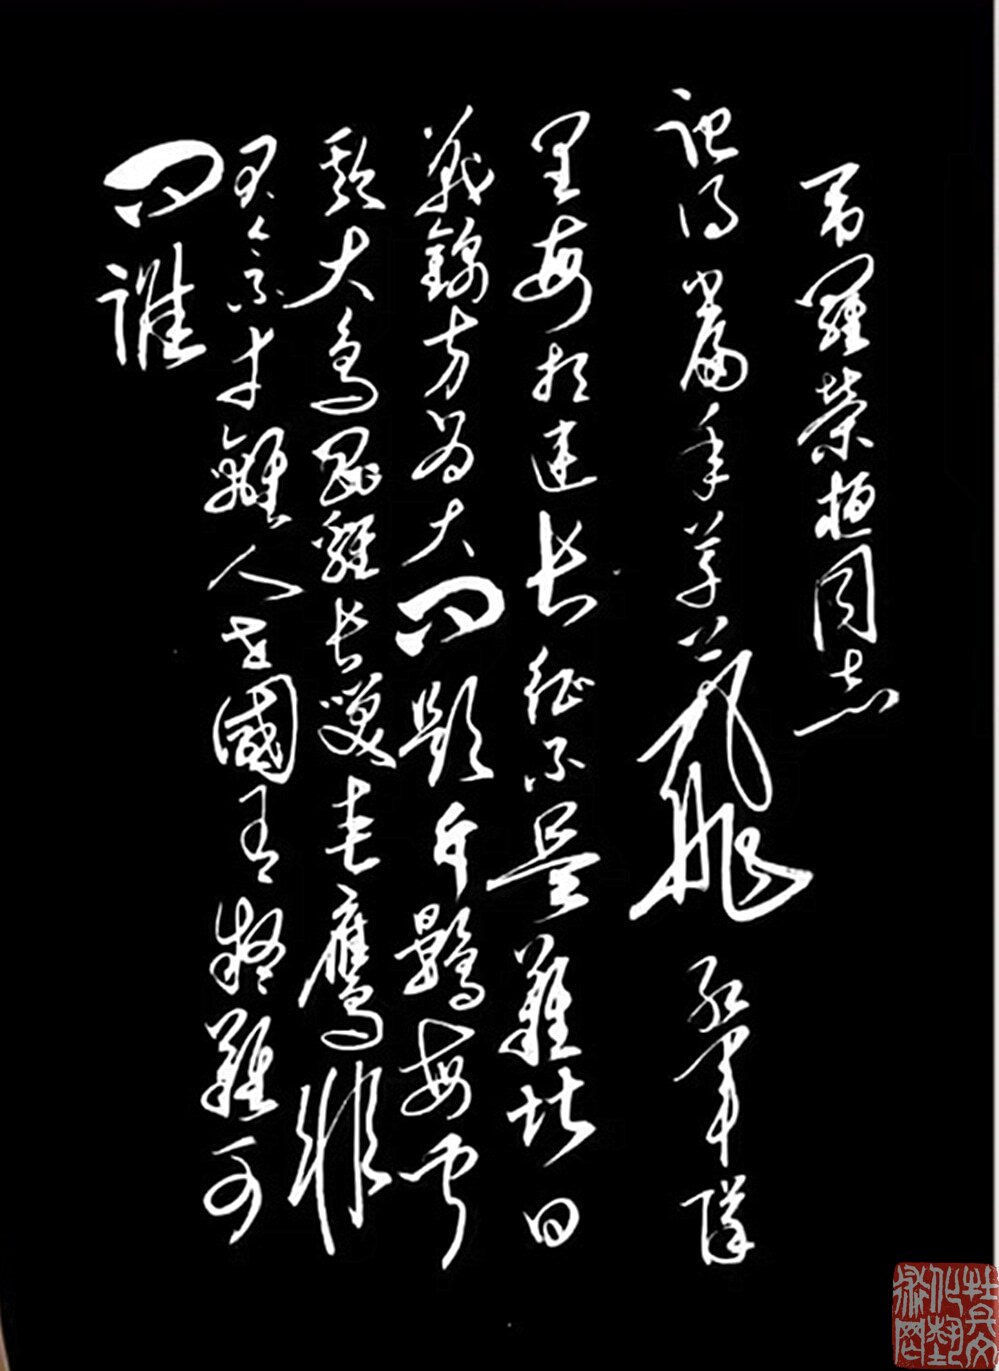 吊羅榮桓同志
記得當年草上飛紅軍隊
里每相違長征不是難堪日
戰錦方為大問題斥鷃每聞
欺大鳥昆雞長笑老鷹非
君今不幸離人世國有疑難可
問誰